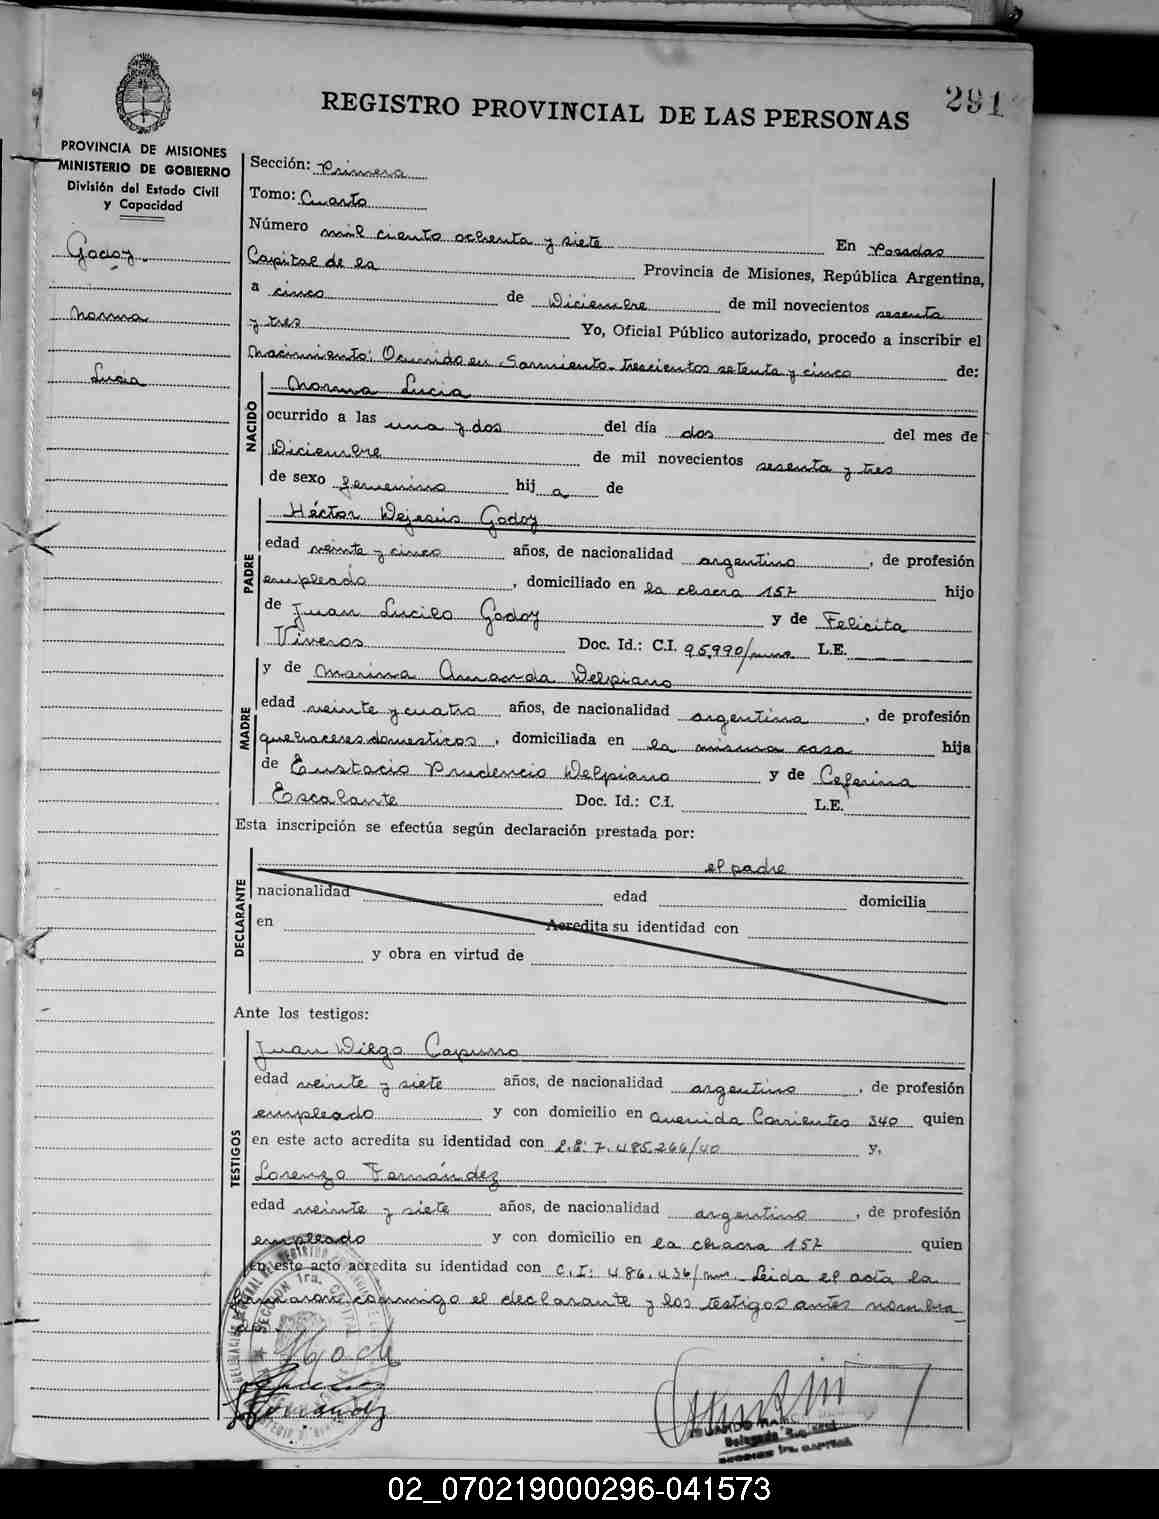 291
REGISTRO PROVINCIAL DE LAS PERSONAS
PROVINCIA DE MISIONES
MINISTERIO DE GOBIERNO
División del Estado Civil
y Capacidad
Godoy.
Norma
Lucia
Sección: Primera
Tomo: Cuarto
Número mil ciento ochenta y siete En Posadas
Capital de la Provincia de Misiones, República Argentina,
a cinco de Diciembre de mil novecientos sesenta
y tres Yo, Oficial Público autorizado, procedo a inscribir el
Nacimiento: Ocurrido en Sarmiento trescientos setenta y cinco de:
NACIDO
Norma Lucia
ocurrido a las una y dos del día dos del mes de
Diciembre de mil novecientos sesenta y tres
de sexo femenino hij a de
PADRE
Héctor Dejesús Godoy
edad veinte y cinco años, de nacionalidad argentino, de profesión
empleado, domiciliado en la chacra 157 hijo
de Juan Lucilo Godoy y de Felicita
Viveros Doc. Id.: C.I. 95.990/mnes L.E.
MADRE
y de Marina Amanda Delpiano
edad veinte y cuatro años, de nacionalidad argentina, de profesión
quehaceres domesticos, domiciliada en la misma casa hija
de Eustacio Prudencio Delpiano y de Ceferina
Escalante Doc. Id.: C.I. L.E.
Esta inscripción se efectúa según declaración prestada por:
DECLARANTE
el padre
nacionalidad edad domicilia
en Acredita su identidad con
y obra en virtud de
Ante los testigos:
TESTIGOS
Juan Diego Capurro
edad veinte y siete años, de nacionalidad argentino, de profesión
empleado y con domicilio en avenida Corrientes 340 quien
en este acto acredita su identidad con L.E: 7.485.266/40 y,
Lorenzo Fernández
edad veinte y siete años, de nacionalidad argentino, de profesión
empleado y con domicilio en la chacra 157 quien
en este acto acredita su identidad con C.I: 486.436/mnes. Leida el acta la
firmaron conmigo el declarante y los testigos antes nombra
SECCION 1ra. CAPITAL
Fernández
SECCION 1ra. CAPITAL
02_070219000296-041573